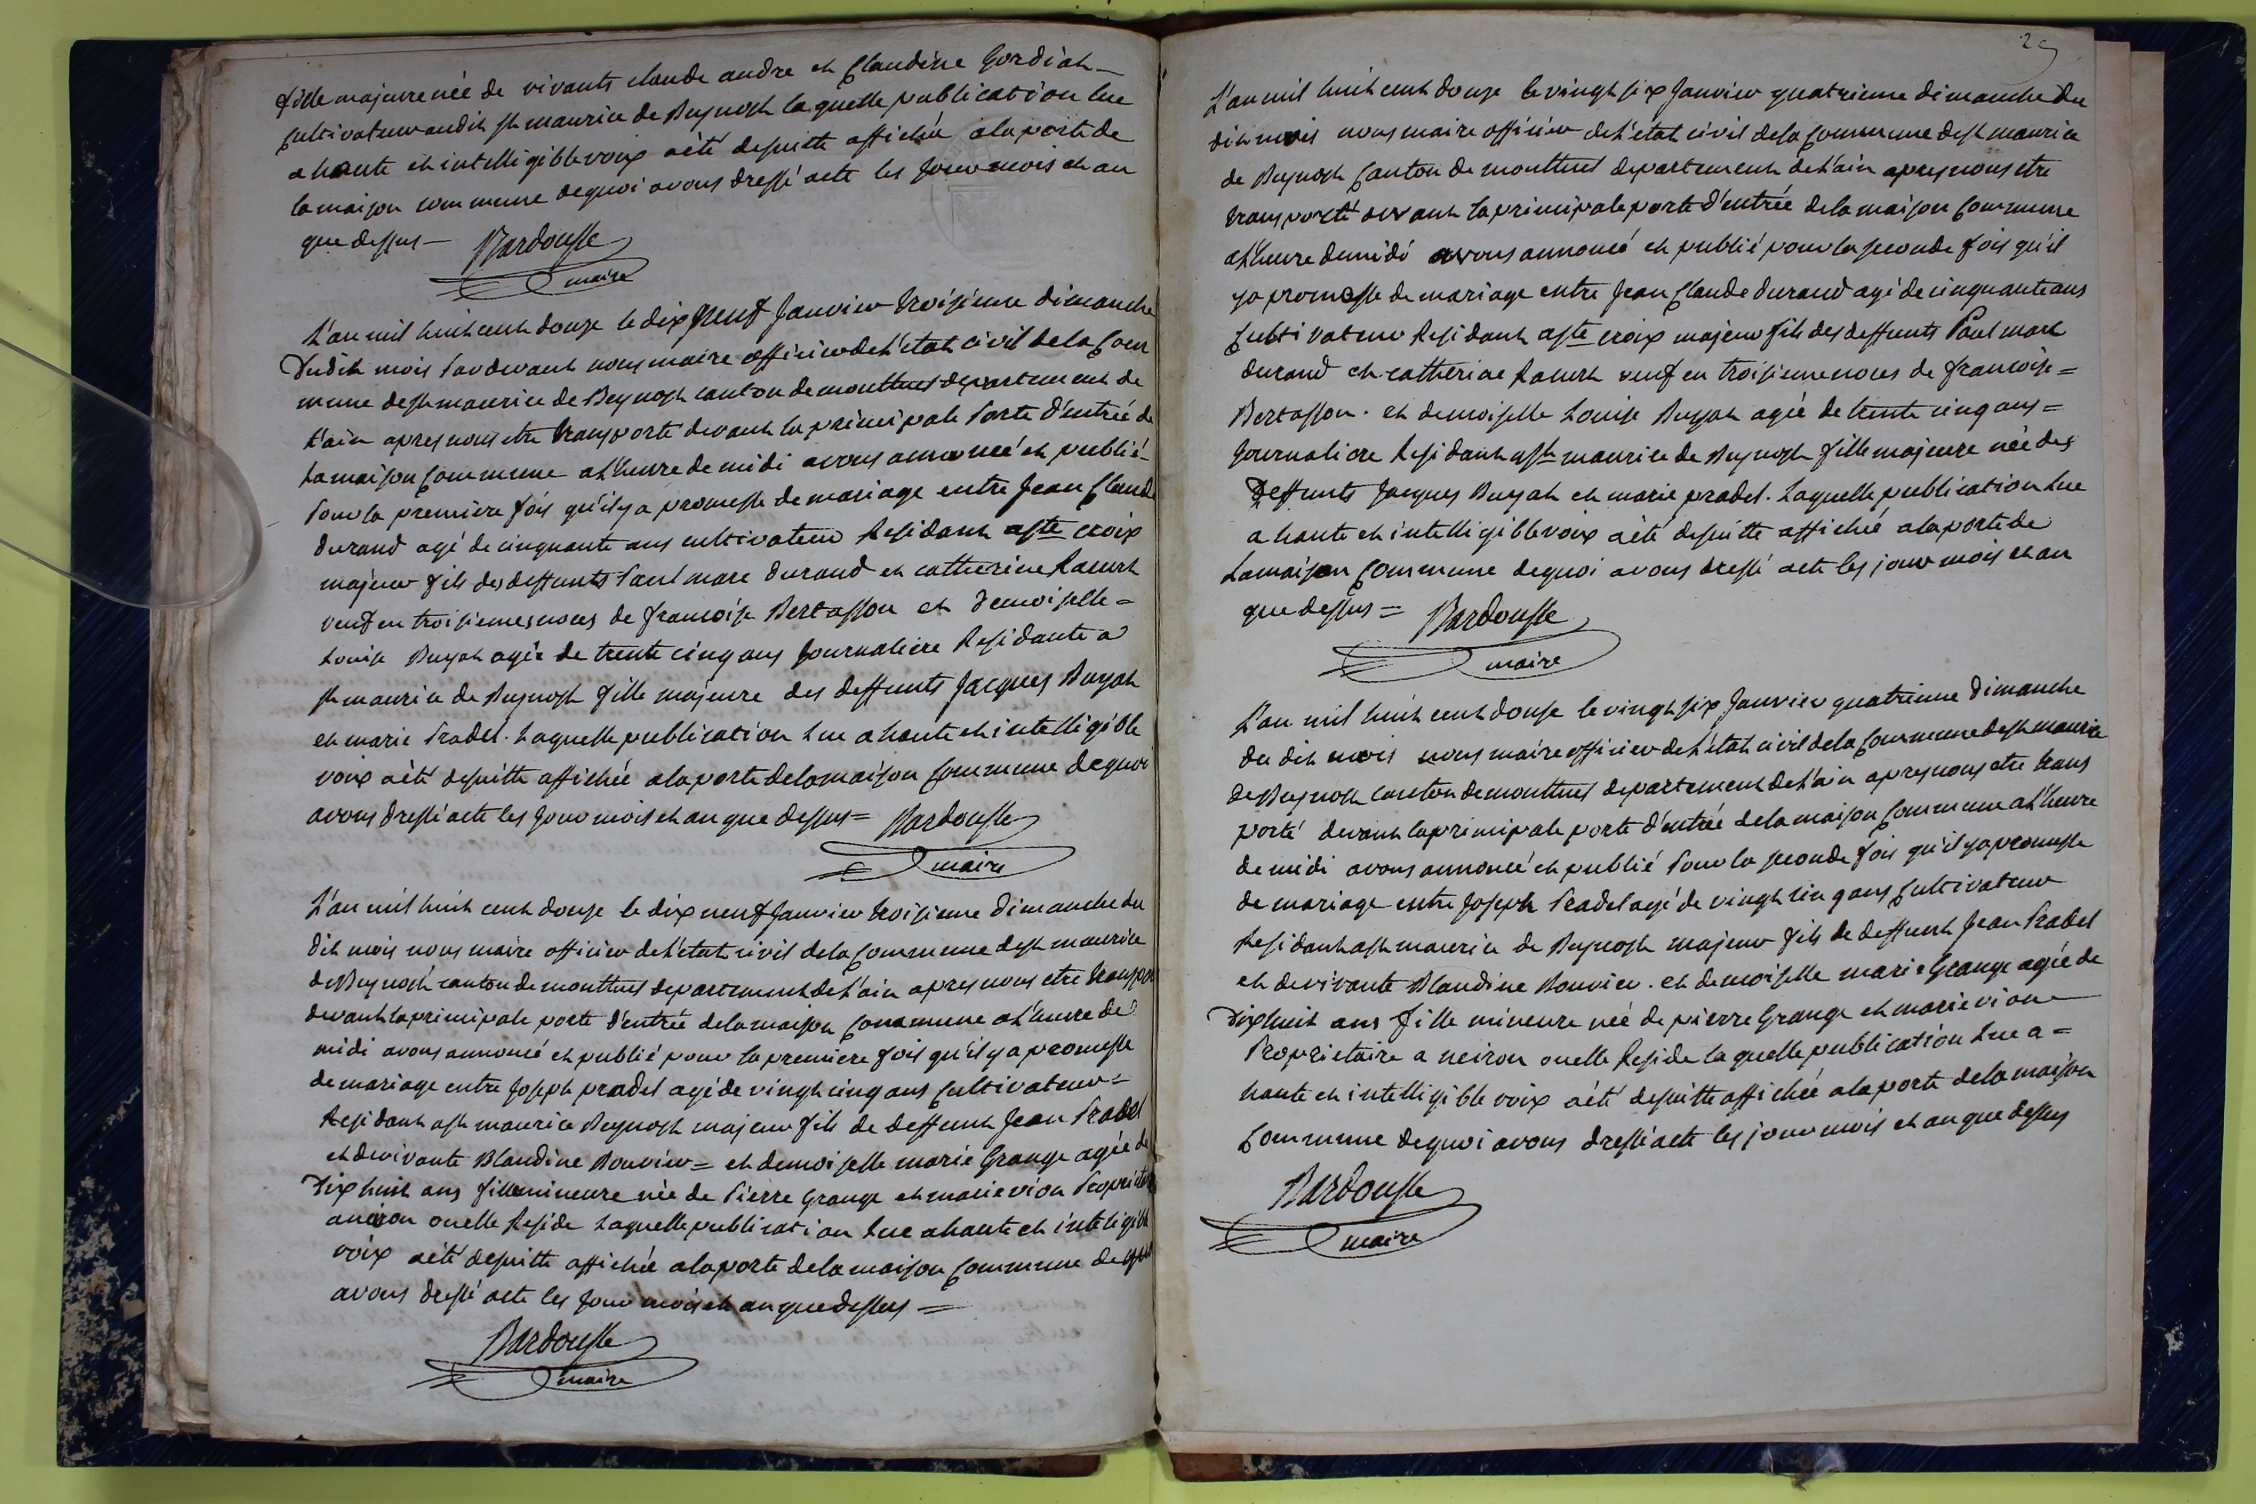 fille majeure née de vivants claude andre et Claudine Gordiat
Cultivateur audit st maurice de Beynost la quelle publication lue
a haute et intelligible voix a été desuitte affichée a la porte de
la maison commune dequoi avons dressé acte les Jour mois et an
que dessus Bardousse
maire
L'an mil huit cent douze le dix neuf Janvier troisieme dimanche
Dudit mois Pardevant nous maire officier de L'état civil de la Com
mune de st maurice de Beynost canton de montluel departement de
L'ain apres nous etre transporté devant la principale Porte d'entrée de
La maison Commune a L'heure de midi avons annoncé et publié
Pour la premiere fois qu'il y a promesse de mariage entre Jean Claude
durand agé de cinquante ans cultivateur Residant a ste croix
majeur fils des deffunts Paul marc durand et catherine Racurt
veuf en troisiemes noces de francoise Bertasson et demoiselle =
Louise Buyat agée de trente cinq ans Journaliere Residante a
st maurice de Beynost fille majeure des deffunts Jacques Buyat
et marie Pradel. Laquelle publication Lue a haute et intelligible
voix a été desuitte affichée a la porte de la maison Commune dequoi
avons dressé acte les Jour mois et an que dessus = Bardousse
maire
L'an mil huit cent douze le dix neuf Janvier troisieme Dimanche du
dit mois nous maire officier de L'état civil de la Commune de st maurice
de Beynost canton de montluel departement de L'ain apres nous etre transpor
devant la principale porte d'entrée de la maison Commune a L'heure de
midi avons annoncé et publié pour la premiere fois qu'il y a promesse
de mariage entre Joseph pradel agé de vingt cinq ans Cultivateur =
Residant a st maurice Beynost majeur fils de deffunt Jean Pradel
et de vivante Blandine Bouvier = et demoiselle marie Grange agée de
Dix huit ans fille mineure née de Pierre Grange et marie vion Propriet
a neiron ou elle Reside Laquelle publication Lue a haute et intelligible
voix a été desuitte affichée a la porte de la maison Commune de quoi
avons dressé acte les Jour mois et an que dessus =
Bardousse
maire
29
L'an mil huit cent douze le vingt six Janvier quatrieme dimanche du
dit mois nous maire officier de L'état civil de la Commune de st maurice
de Beynost Canton de montluel departement de L'ain apres nous etre
transporté devant la principale porte d'entrée de la maison Commune
a L'heure de midi avons annoncé et publié pour la seconde fois qu'il
ya promesse de mariage entre Jean Claude durand agé de cinquante ans
Cultivateur Residant a ste croix majeur fils des deffunts Paul marc
durand et catherine Racurt veuf en troisieme noces de francoise =
Bertasson. et demoiselle Louise Buyat agée de trente cinq ans =
Journaliere Residant a st maurice de Beynost fille majeure née des
Deffunts Jacques Buyat et marie pradel. Laquelle publication Lue
a haute et intelligible voix a été desuitte affichée a la porte de
La maison Commune dequoi avons dressé acte les jour mois et an
que dessus = Bardousse
maire
L'an mil huit cent douse le vingt six Janvier quatrieme Dimanche
du dit mois nous maire officier de L'état civil de la Commune de st maurice
de Beynost canton de montluel departement de L'ain apres nous etre trans
porté devant la principale porte d'entrée de la maison Commune a L'heure
de midi avons annoncé et publié Pour la seconde fois qu'il ya promesse
de mariage entre Joseph Pradel agé de vingt cinq ans Cultivateur
Residant a st maurice de Beynost majeur fils de deffunt Jean Pradel
et de vivante Blandine Bouvier. et demoiselle marie Grange agée de
Dix huit ans fille mineure née de pierre Grange et marie vion
Proprietaire a neiron ou elle Reside la quelle publication Lue a =
haute et intelligible voix a été desuitte affichée a la porte de la maison
Commune de quoi avons dressé acte les jour mois et an que dessus
Bardousse
maire